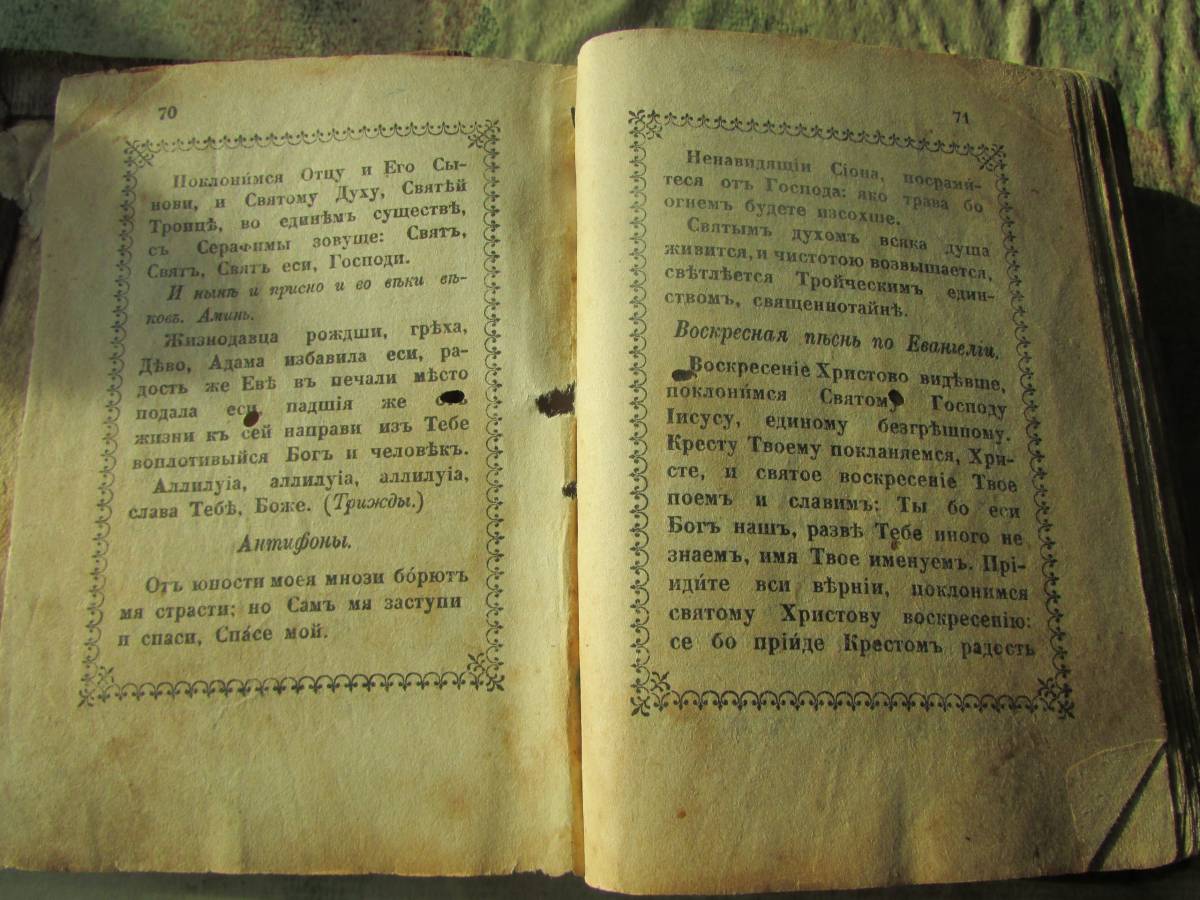 70
Поклони́мся Отцу и Его Сы-
нови, и Святому Духу, Святѣй
Троицѣ, во единѣмъ существѣ,
съ Серафимы зовуще: Святъ,
Святъ, Святъ еси, Господи.
И нынѣ и присно и во вѣки вѣ-
ковъ. Аминь.
Жизнодавца рождши, грѣха,
Дѣво, Адама избавила еси, ра-
дость же Евѣ въ печали мѣсто
подала еси, падшія же
жизни къ сей направи изъ Тебе
воплотивыйся Богъ и человѣкъ.
Аллилуіа, аллилуіа, аллилуіа,
слава Тебѣ, Боже. (Трижды.)
Антифоны.
Отъ юности моея мнози бо́рютъ
мя страсти; но Самъ мя заступи
и спаси, Спа́се мой.
71
Ненавидящіи Сіона, посрами́-
теся отъ Господа: яко трава бо
огнемъ будете изсохше.
Святымъ духомъ всяка душа
живится, и чистотою возвышается,
свѣтлѣется Тройческимъ един-
ствомъ, священнотайнѣ.
Воскресная пѣснь по Евангеліи.
Воскресеніе Христово видѣвше,
поклони́мся Святому Господу
Іисусу, единому безгрѣшному.
Кресту Твоему покланяемся, Хри-
сте, и святое воскресеніе Твое
поемъ и славимъ: Ты бо еси
Богъ нашъ, развѣ Тебе иного не
знаемъ, имя Твое именуемъ. Прі-
иди́те вси вѣрніи, поклонимся
святому Христову воскресенію:
се бо прі́йде Крестомъ радость